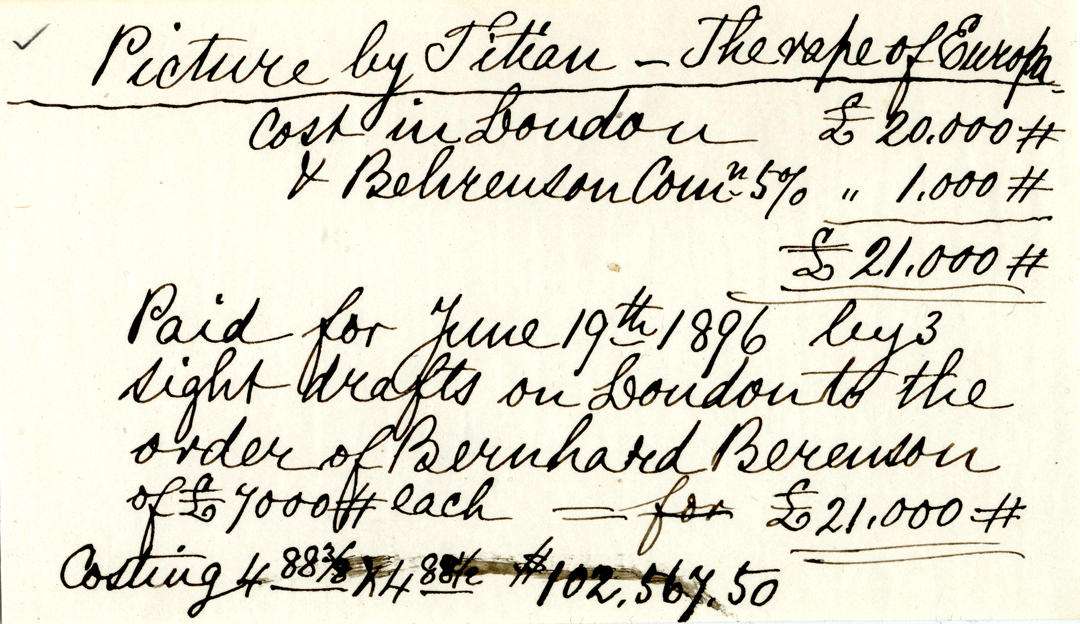 Picture by Titian – The rape of Europa
Cost in London £ 20.000 #
& Behrenson Comn 5% " 1.000 #
£ 21.000 #
Paid for June 19th 1896 by 3
sight drafts on London to the
order of Bernhard Berenson
of £ 7000 # each = for £ 21.000 #
Costing 4 88 3/8 & 4 88 1/2 $102.567.50